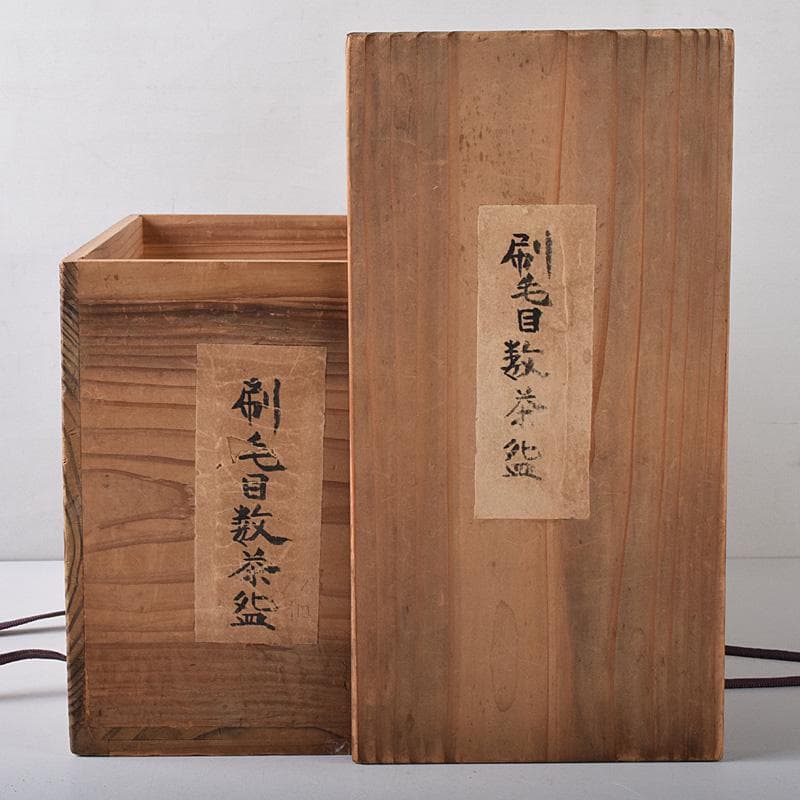 刷毛目数茶盌
刷毛目数茶盌